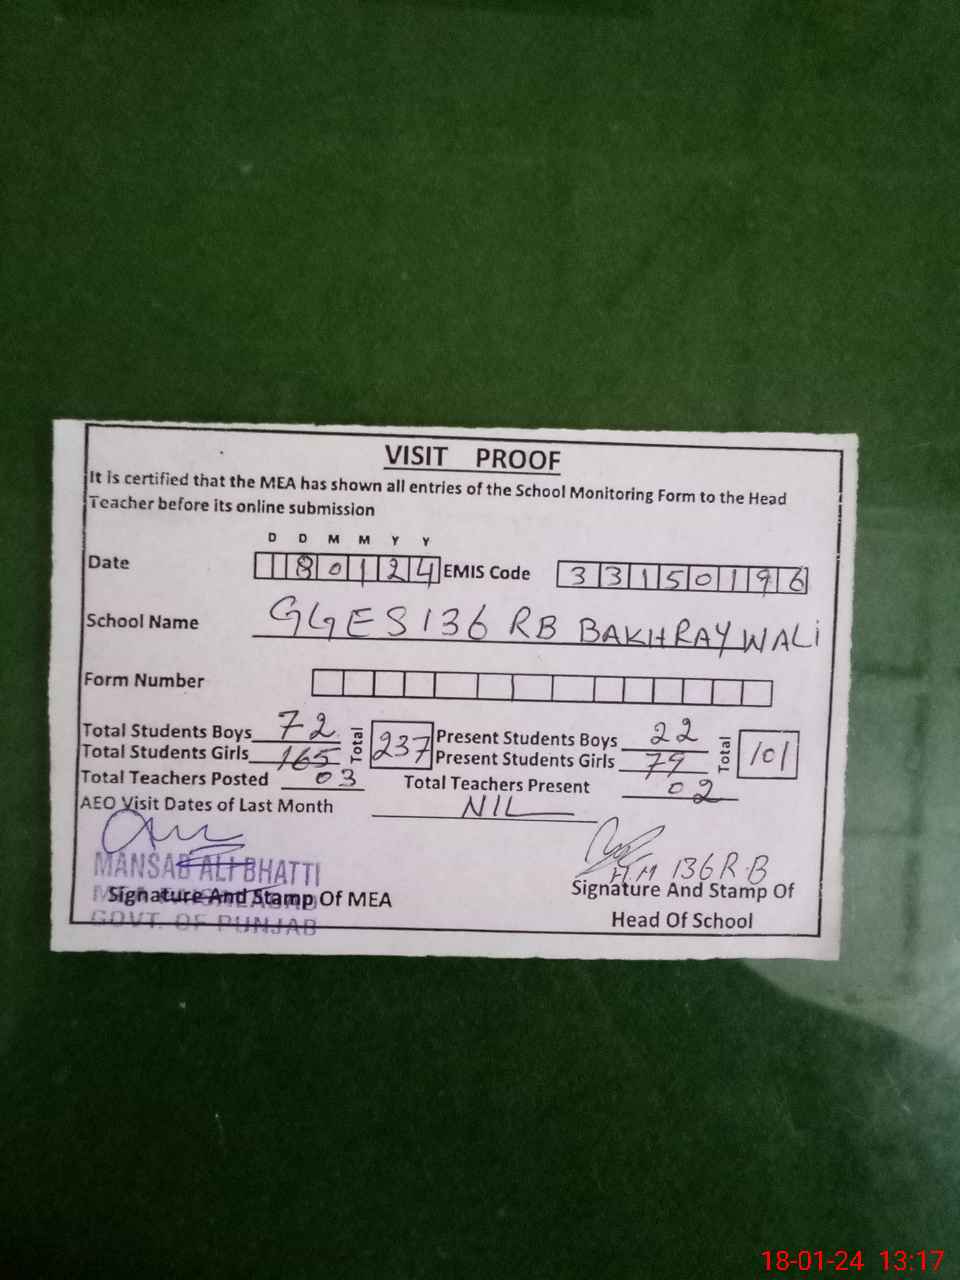 VISIT PROOF
It is certified that the MEA has shown all entries of the School Monitoring Form to the Head
Teacher before its online submission
D D M M Y Y
Date 180124 EMIS Code 33150196
School Name GGES 136 RB BAKHRAYWALi
Form Number
Total Students Boys 72 Total 237 Present Students Boys 22 Total 101
Total Students Girls 165 Present Students Girls 79
Total Teachers Posted 03 Total Teachers Present 02
AEO Visit Dates of Last Month NIL
MANSAB ALI BHATTI H.M 136 R.B
Signature And Stamp Of MEA Signature And Stamp Of
GOVT. OF PUNJAB Head Of School
18-01-24 13:17